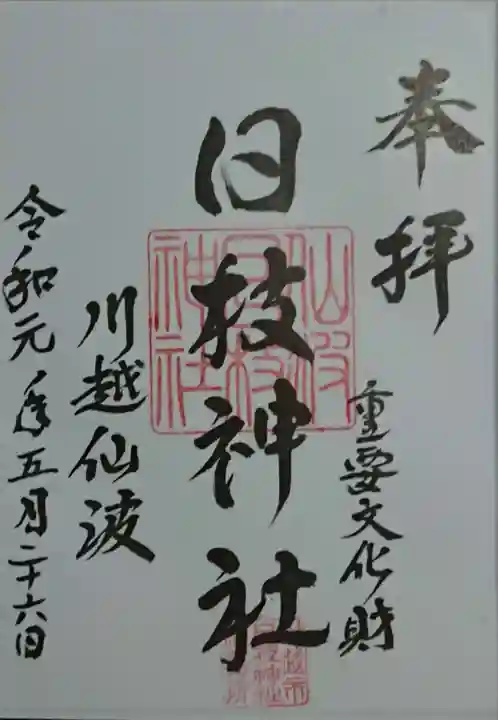 奉拝
重要文化財
日枝神社
川越仙波
令和元年五月二十六日
仙波
日枝
神社